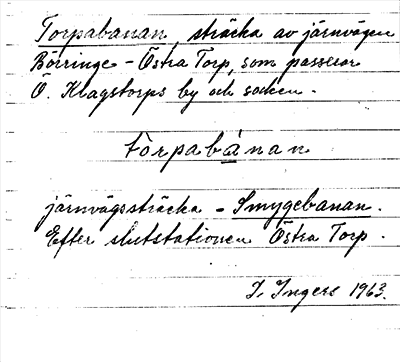 Torpabanan, sträcka av järnvägen
Börringe - Östra Torp, som passerar
Ö. Klagstorps by och socken.
tòrpabánan
järnvägssträcka - Smygebanan.
Efter slutstationen Östra Torp.
I. Ingers 1963.